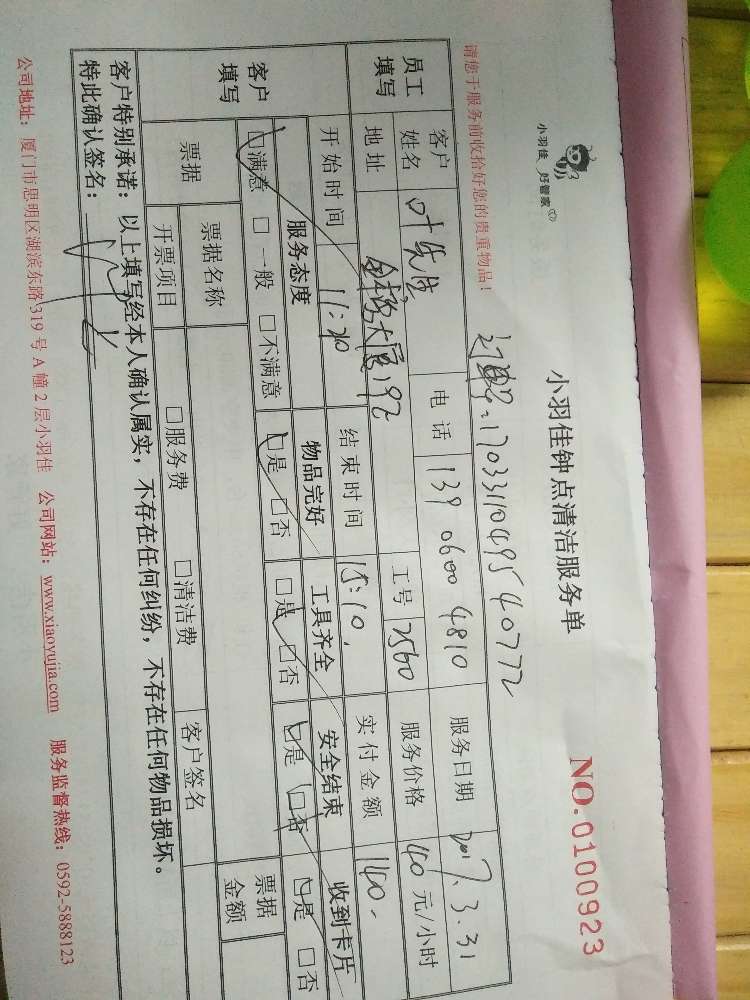 小羽佳 好管家
小羽佳钟点清洁服务单
NO.0100923
请您于服务前收拾好您的贵重物品！
订单号:17033110495 40772
员工填写 客户姓名 叶先生 电话 139 0600 4810 服务日期 2017.3.31
地址 金桥大厦192 工号 2560 服务价格 40元/小时
开始时间 11:40 结束时间 15:10 实付金额 140.
客户填写 服务态度 物品完好 工具齐全 安全结束 收到卡片
□满意 □一般 □不满意 □是 □否 □是 □否 □是 □否 □是 □否
票据 票据名称 票据金额
开票项目 □服务费 □清洁费 客户签名
客户特别承诺：以上填写经本人确认属实，不存在任何纠纷，不存在任何物品损坏。
特此确认签名：
公司地址：厦门市思明区湖滨东路319号A幢2层小羽佳 公司网站：www.xiaoyujia.com 服务监督热线：0592-5888123